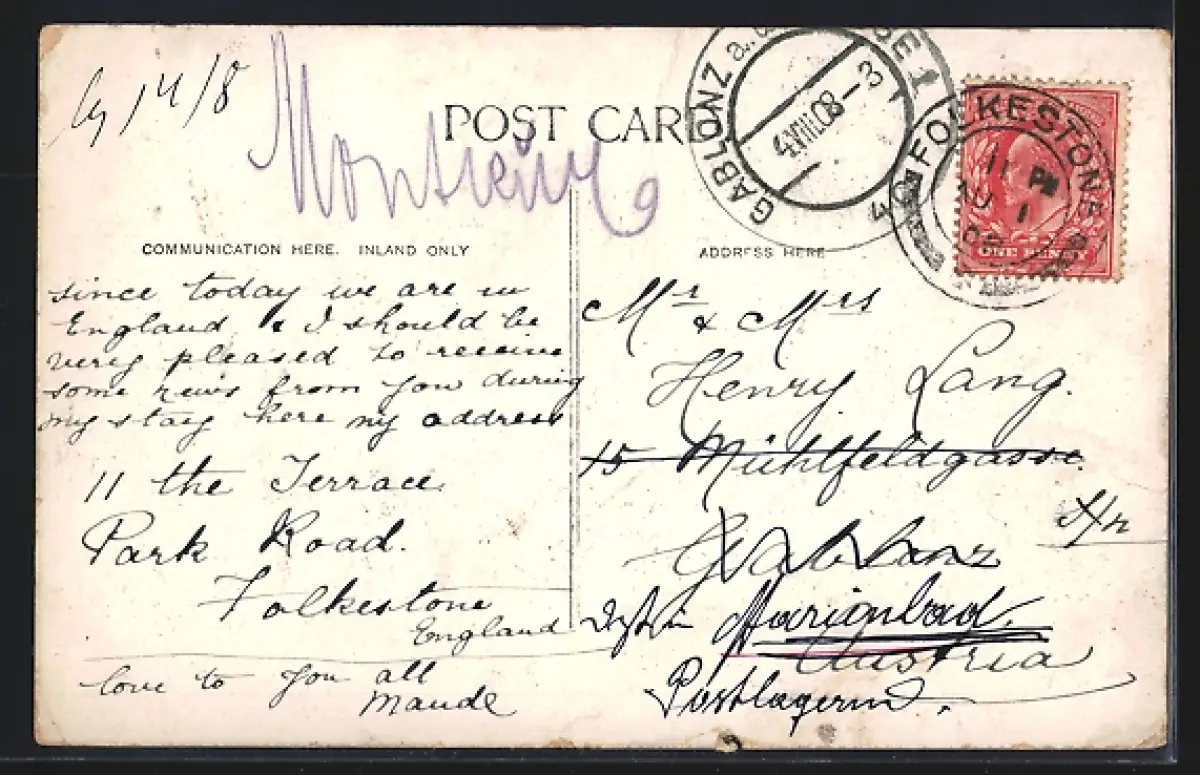 14/8
POST CARD
COMMUNICATION HERE. INLAND ONLY
ADDRESS HERE
GABLONZ a.d.
4.VIII.08 – 3
FOLKESTONE
11 PM
1
ONE PENNY
since today we are in
England & I should be
very pleased to receive
some news from you during
my stay here my address
11 the Terrace
Park Road.
Folkestone
England
love to you all
Maude
Mr & Mrs
Henry Lang.
15 Mühlfeldgasse
Gablonz
Marienbad
Austria
Postlagernd.